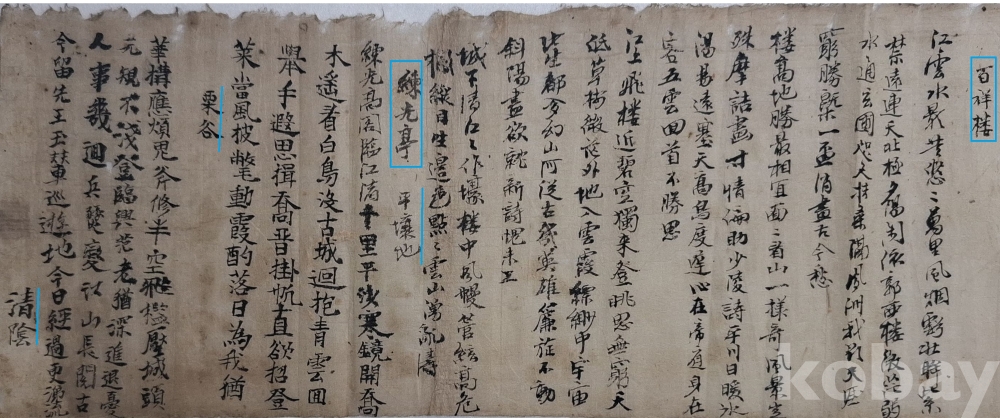 百祥楼
江雲水最 萬里風烟 壯眸
禁遠連天北極 西樓
水通
勝槩一盃消盡古今愁
樓高地勝最相宜面面看山一樣奇風景
殊摩詰畫才情偏助少陵詩平川日暖水
遠塞天高鳥度遲心在帝 身在
客五雲回首不勝思
江上飛楼近碧空獨来登眺思無窮天
低草樹微茫外地入雲霞縹緲中宇宙
此生都夢幻山河從古幾英雄簾旌不動
斜陽盡欲就新詩愧未工
城下清江々作壕楼中風幔管絃高危
日生邊色點々雲山湧亂濤
練光亭 平壤地
練光高閣臨江渚十里平沙寒鏡開喬
木遥看白鳥没古城迴抱青雲回
舉手遐思揖喬晋掛帆直欲招登
萊當風披氅動霞酌落日為我猶
栗谷
華構應煩鬼斧修半空飛檻壓城頭
元規不淺登臨興范老猶深進退憂
人事幾迴兵燹變江山長閱古
今留先王玉輦巡遊地今日經過更淚流
清陰
kobay